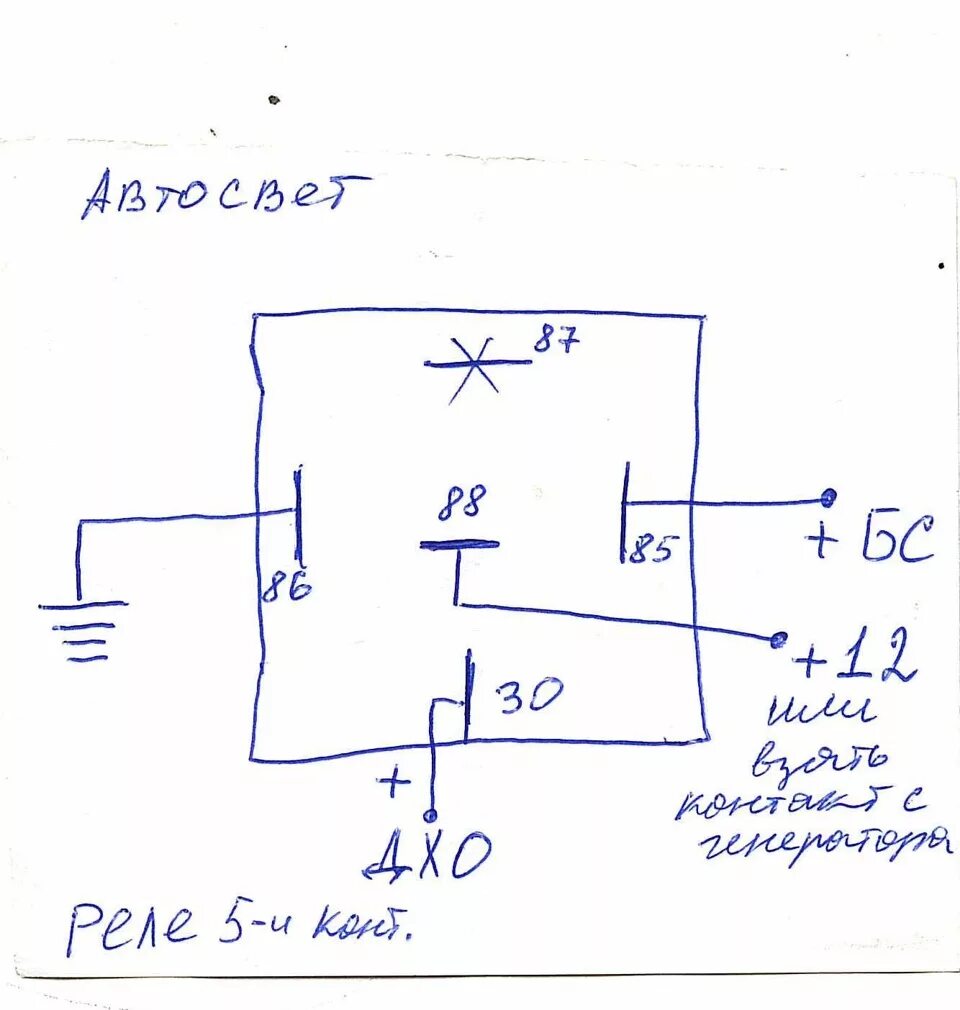 АВТОСВЕТ
87
88
85
86
+ БС
+12
или
взять
контакт с
генератора
30
+
ДХО
Реле 5-и конт.